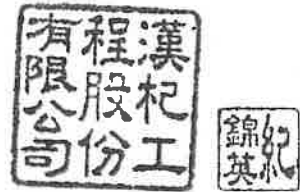 漢杞工
程股份
有限公司
紀錦英